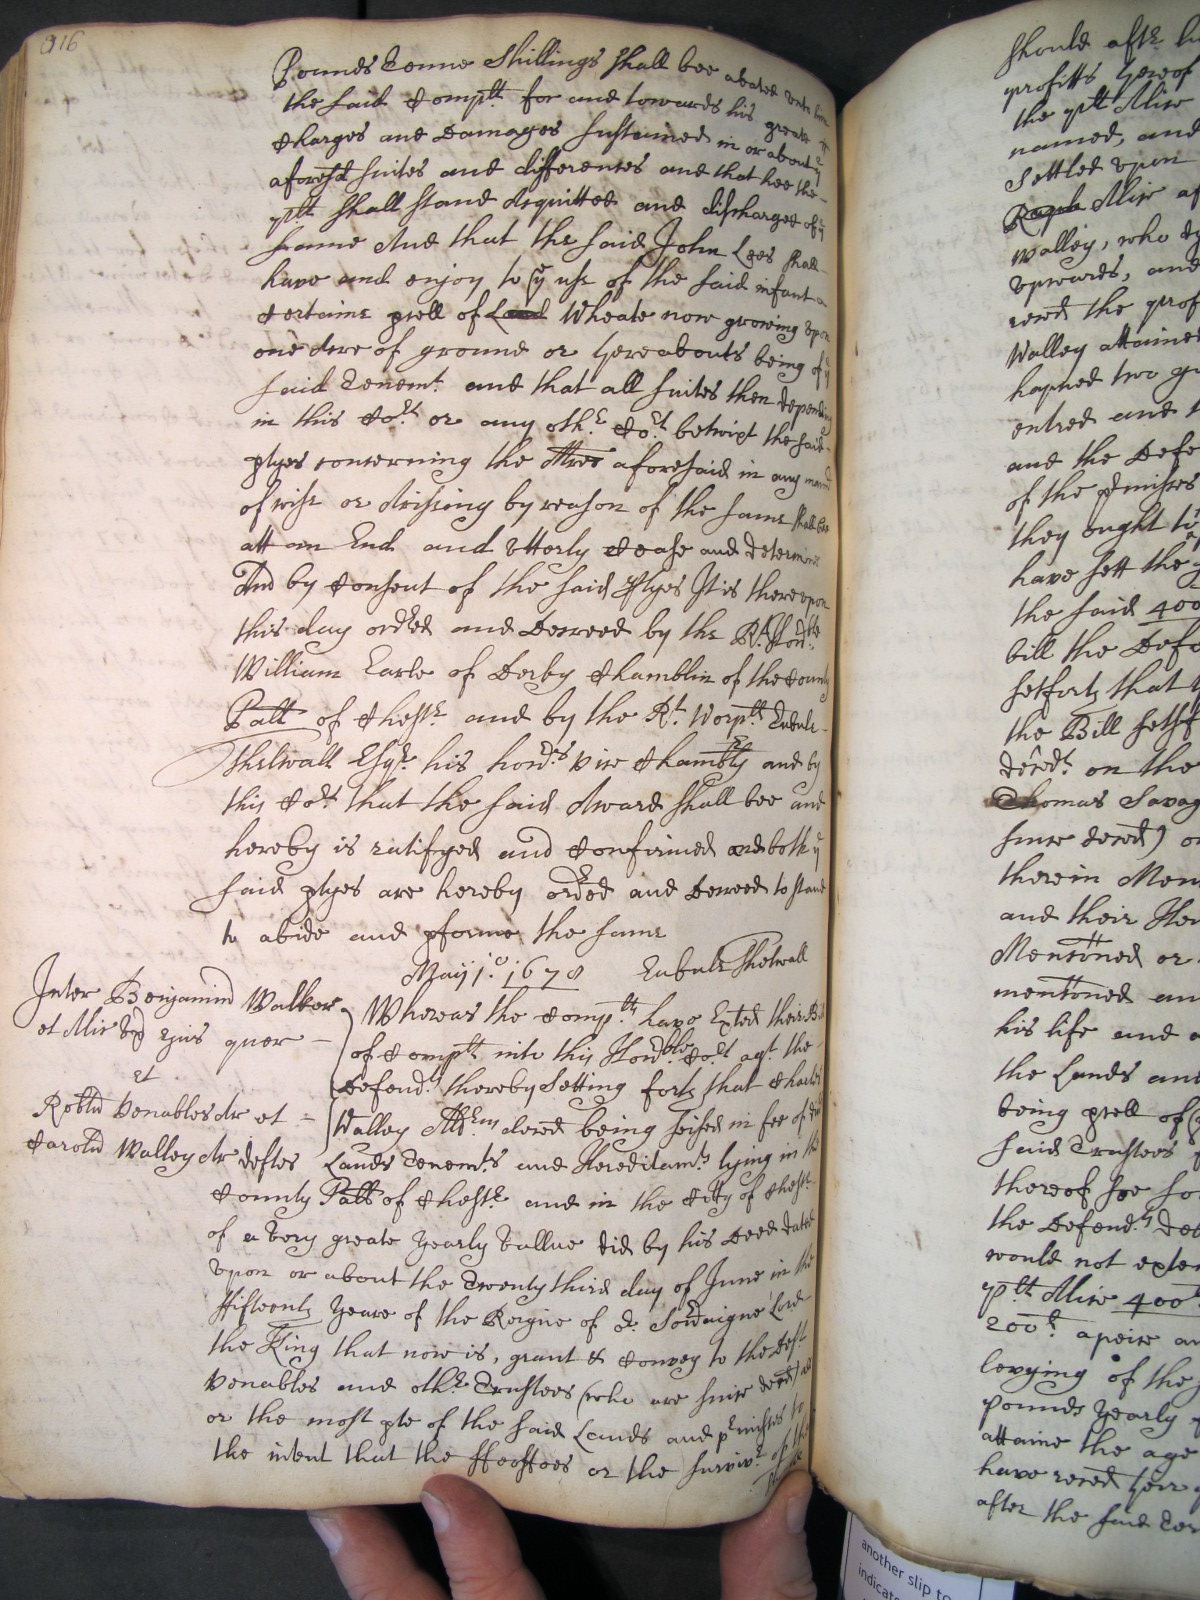 916
Pounds Tenne Shillings shall bee abated unto him
the said Comp.lt for and towards his greate
Charges and Damages sustained in or about ye
aforesd suites and differences and that hee the
plt shall stand Acquitted and discharged of ye
same And that the said John Lees shall
have and enjoy to ye use of the said infant a
Certaine pcell of Land Wheate now growing upon
one Acre of ground or hereabouts being of ye
said Tenemt. and that all suites then depending
in this Co:rt or any othr. Co:rt betwixt the said
ptyes concerning the Mres aforesaid in any manner
of wise or Arising by reason of the same shall bee
att an End and Utterly Cease and determine
And by Consent of the said Ptyes It is thereupon
this day ordred and Decreed by the Rt. Honble
William Earle of Derby Chamblin of the County
Palt of Chestr. and by the Rt. Worpll Eubule
Thelwall Esqr. his honrs Vice Chamblin and by
this Cort that the said Award shall bee and
hereby is ratifyed and Confirmed and both ye
said ptyes are hereby ordred and Decreed to stand
to abide and pforme the same
May 1o. 1678 Eubule Thelwall
Inter Benjamind Walker
et Alic ux eius quer
et
Robtu Venables Ar et
Carolu Walley Ar deftes
Whereas the Complts have Exted their Bill
of Complt into this Honrble Cort agt the
Defendts thereby Setting forth that Charles
Walley Aldrm deced being seised in fee of
Lands Tenemts and Hereditamts lying in the
County Palt of Chestr and in the Citty of Chestr
of a Very greate Yearly Vallue did by his Deed dated
upon or about the Twenty third day of June in the
ffifteenth Yeare of the Reigne of or Soveraigne Lord
the King that now is, grant & Convey to the Deft
Venables and othr Trustees (who are since deced) all
or the most pte of the said Lands and pmisses to
the intent that the ffeoffees or the Survivr of the
should aftr
profitts hereof
the plt Alice
named, and
Settled upon
Ralph Alice
Walley, who
upwards, and
reced the prof
Walley attained
hapned two
entred and
and the Defe
of the pmisses
they ought to
have sett the
the said 400
bill the Defe
setforth that
the Bill setsf
decedt. on the
Thomas Savag
since deced) or
therein Men
and their Hei
Mentioned or
mentioned an
his life and a
the Lands and
being pcell of
said Trustees
thereof hee so
the Defendts
would not exten
plt Alice 400
200l. apeice an
levying of the
Pounds Yearly
attaine the age
have reced
after the said
another slip to
indicate